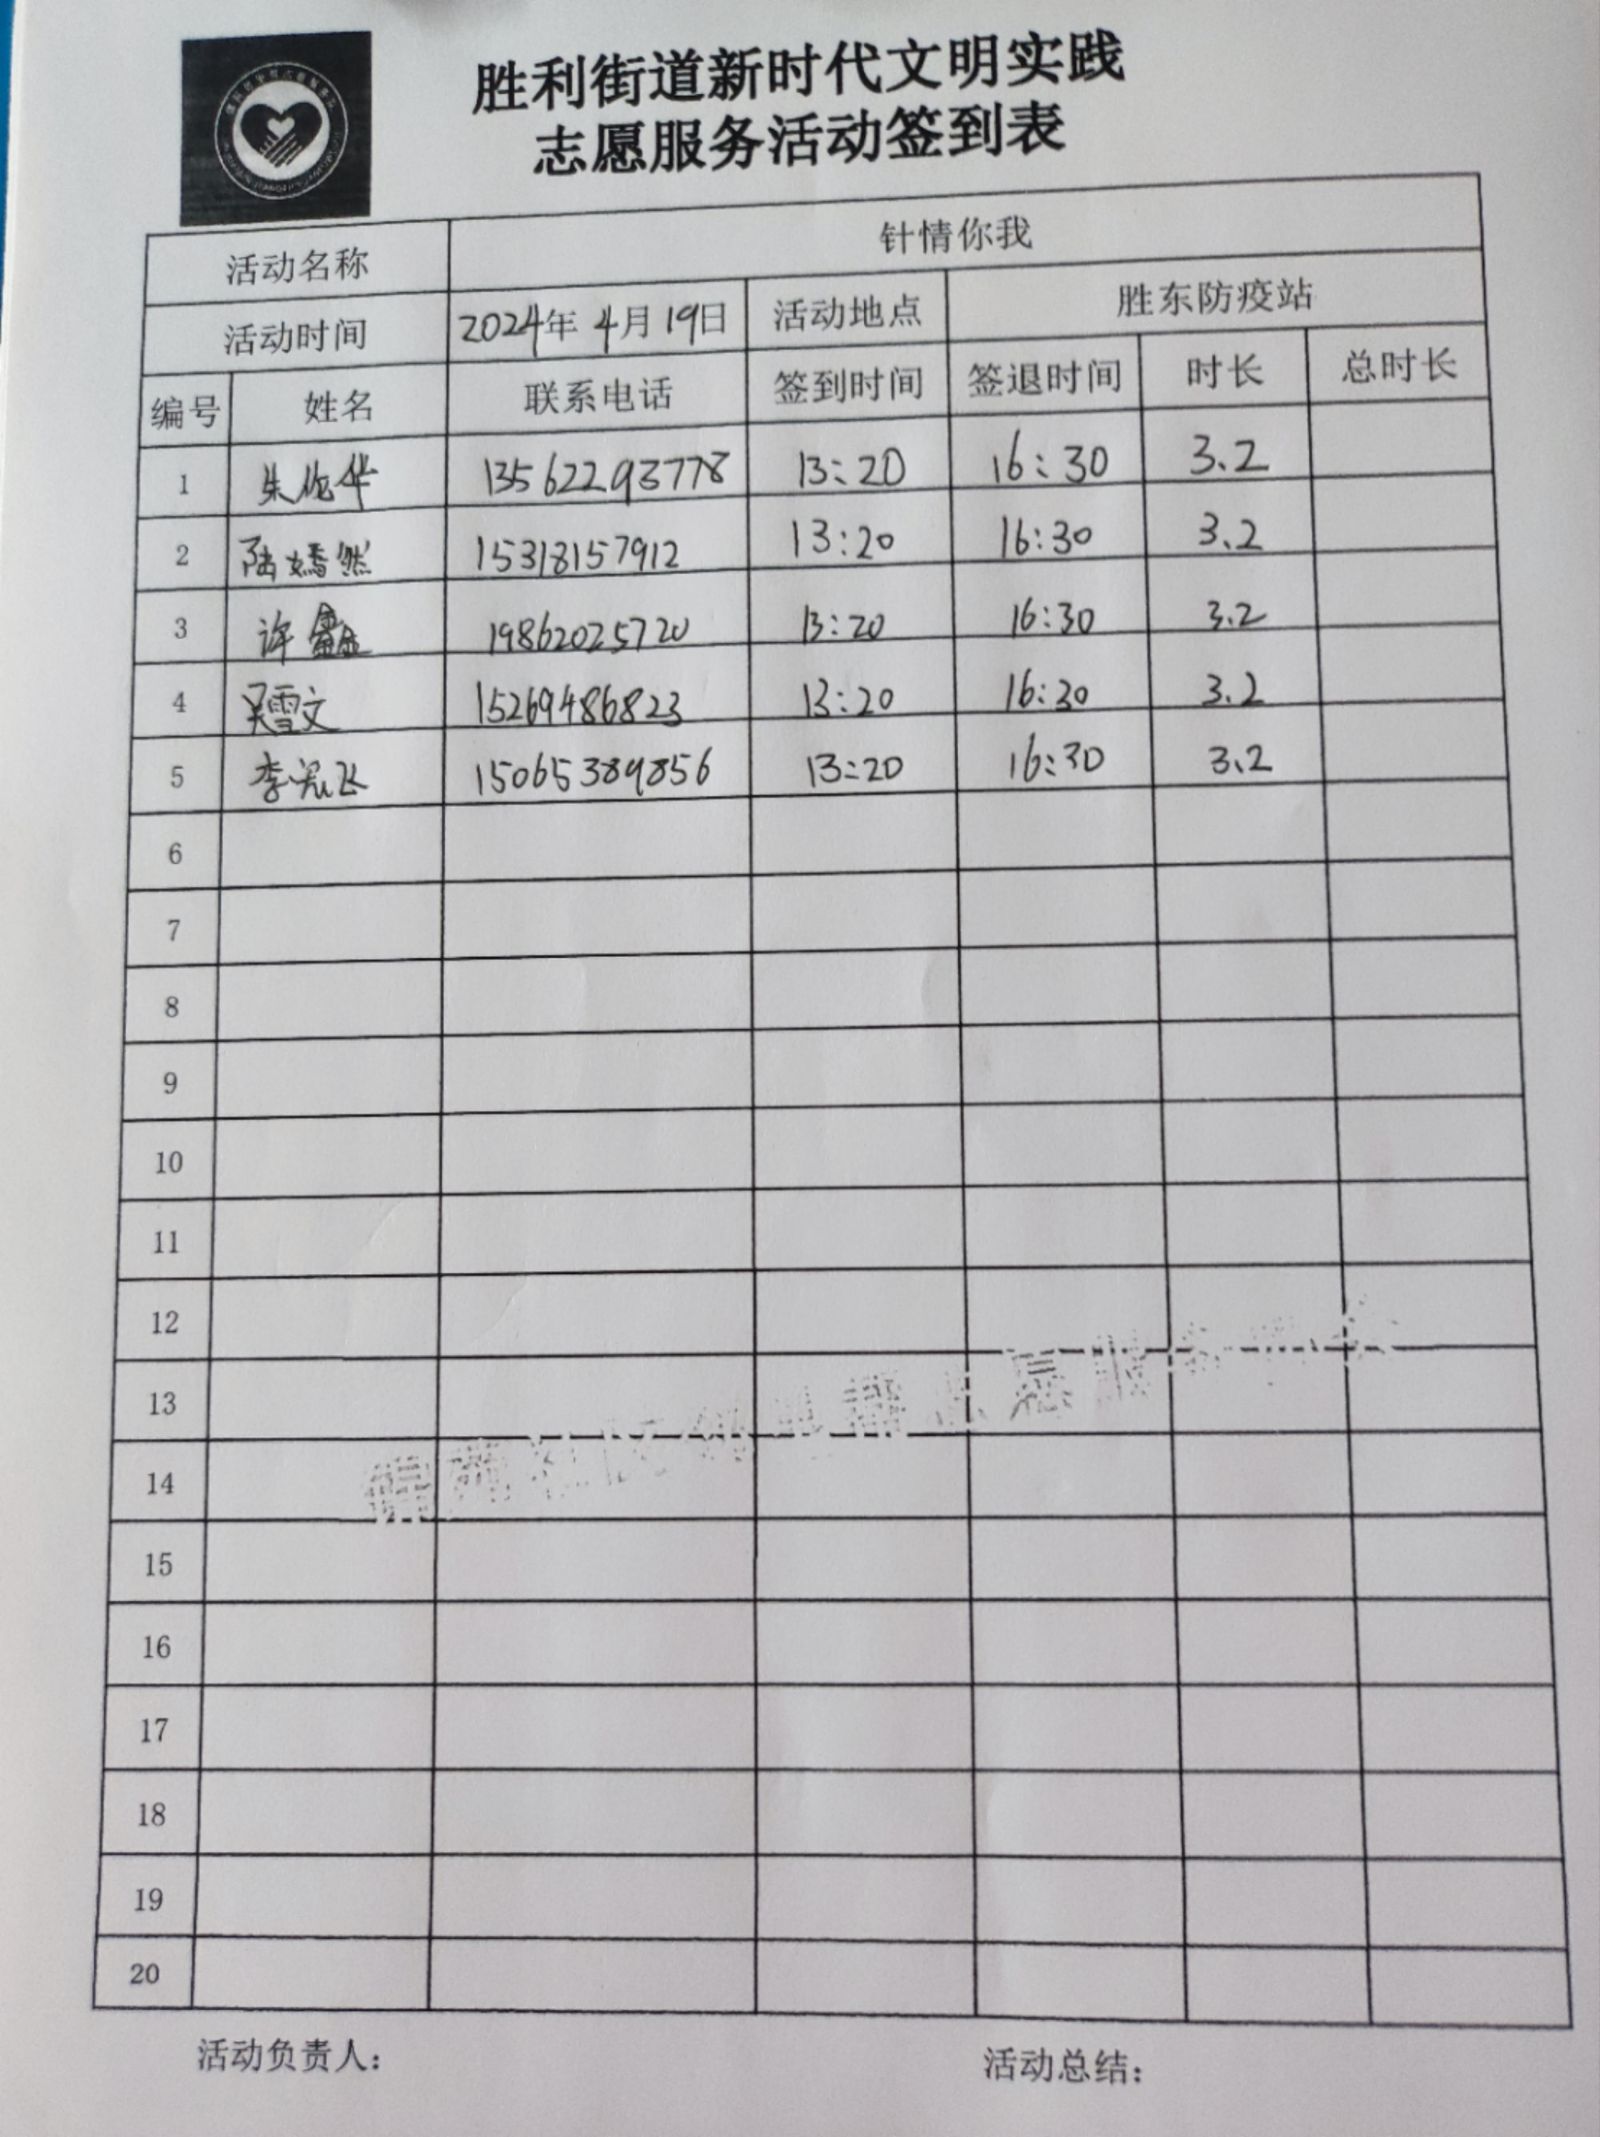 胜利街道新时代文明实践
志愿服务活动签到表
活动名称 针情你我
活动时间 2024年 4月19日 活动地点 胜东防疫站
编号 姓名 联系电话 签到时间 签退时间 时长 总时长
1 朱伦华 13562293778 13:20 16:30 3.2
2 陆嫣然 15318157912 13:20 16:30 3.2
3 许鑫 19862025720 13:20 16:30 3.2
4 吴雪文 15269486823 13:20 16:30 3.2
5 李宪飞 15065389856 13:20 16:30 3.2
6
7
8
9
10
11
12
13
14
15
16
17
18
19
20
活动负责人: 活动总结: